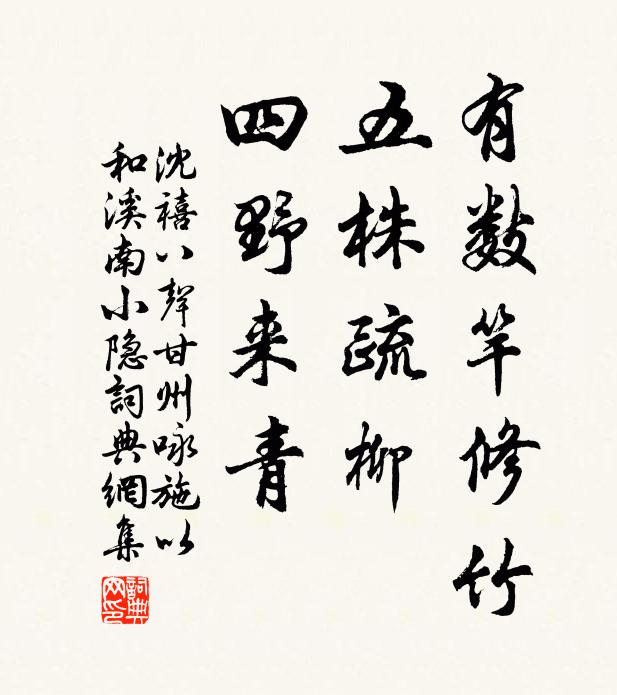 有数竿修竹
五株疏柳
四野来青
沈禧八聲甘州咏施以
和溪南小隐詞典網集
詞典
网印